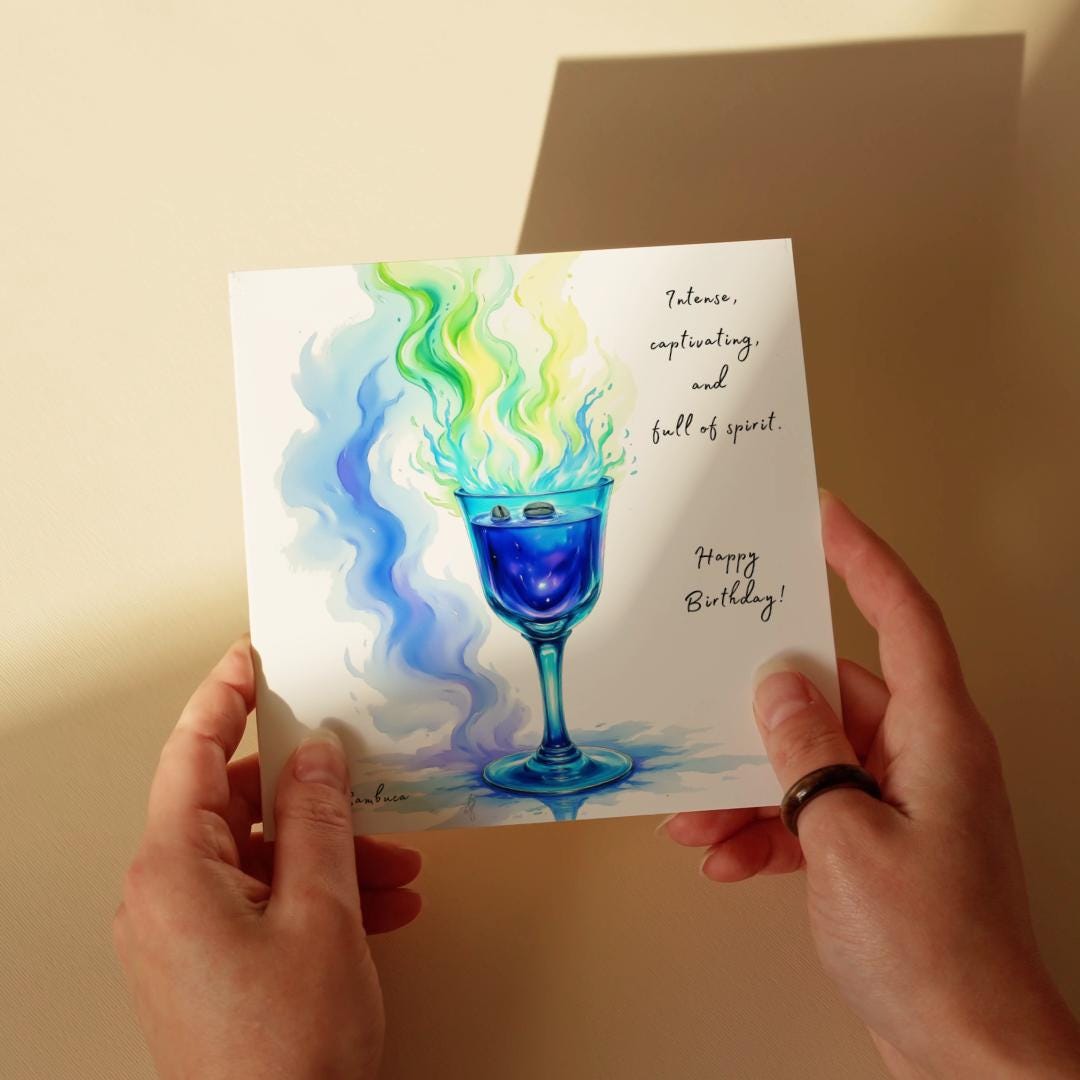 Intense,
captivating,
and
full of spirit.
Happy
Birthday!